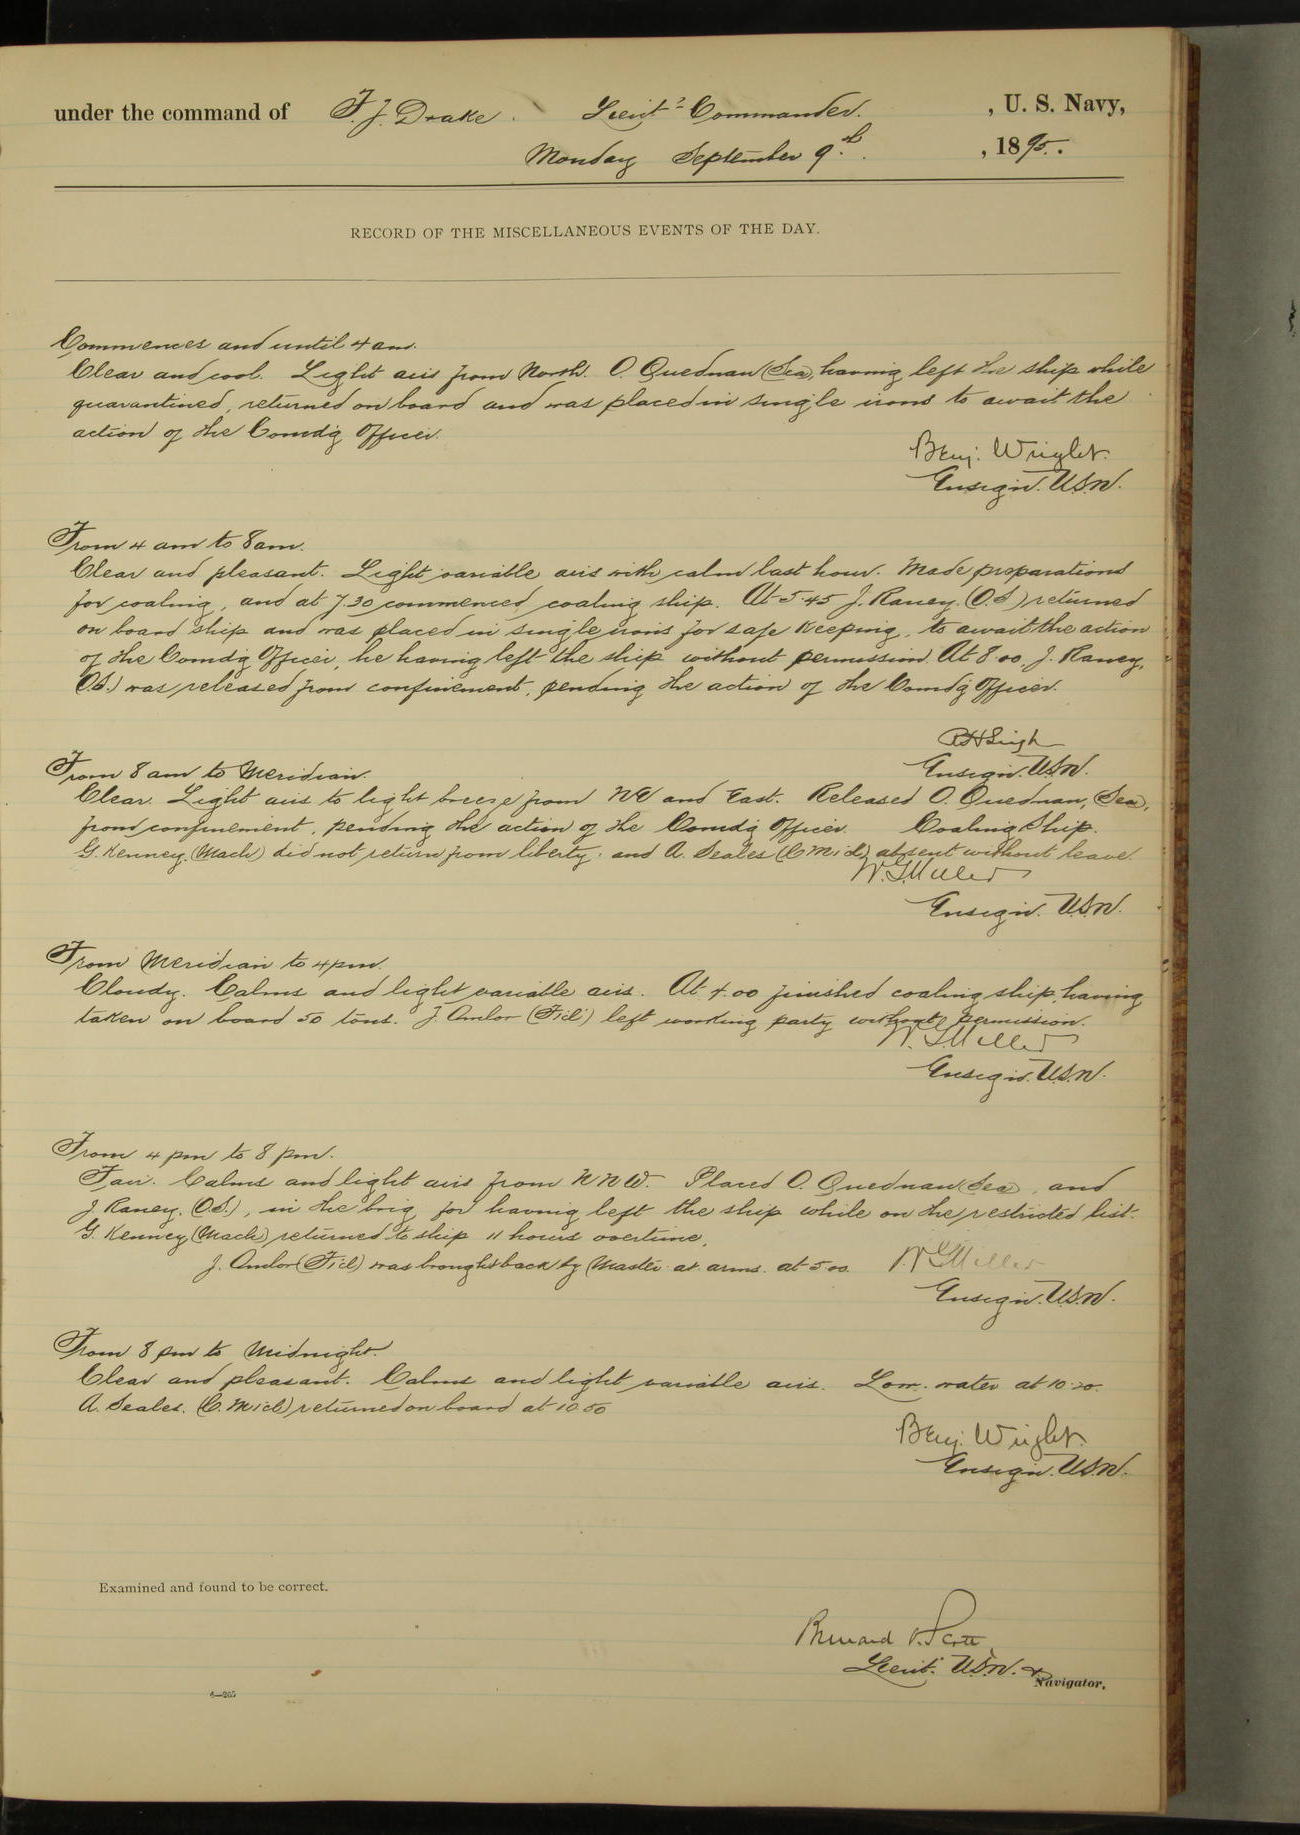 under the command of F. J. Drake. Lieut. Commander. , U. S. Navy,
Monday September 9th. , 1895.
RECORD OF THE MISCELLANEOUS EVENTS OF THE DAY.
Commences and until 4 am.
Clear and cool. Light airs from North. O. Quednau (Sea) having left the ship while
quarantined, returned on board and was placed in single irons to await the
action of the Comdg Officer.
Benj. Wright.
Ensign. U.S.N.
From 4 am to 8 am.
Clear and pleasant. Light variable airs with calm last hour. Made preparations
for coaling, and at 7.30 commenced coaling ship. At 5.45 J. Raney. (O.S.) returned
on board ship and was placed in single irons for safe keeping, to await the action
of the Comdg Officer, he having left the ship without permission. At 8.00 J. Raney,
(O.S.) was released from confinement, pending the action of the Comdg Officer.
Ensign. U.S.N.
From 8 am to Meridian.
Clear. Light airs to light breeze from NE and East. Released O. Quednau, (Sea),
from confinement, pending the action of the Comdg Officer. Coaling Ship.
G. Kenney. (Mach) did not return from liberty. and A. Seales (C. M id) absent without leave.
W. G. Miller
Ensign. U.S.N.
From Meridian to 4 pm.
Cloudy. Calms and light variable airs. At 4.00 finished coaling ship, having
taken on board 50 tons. J. (F1cl) left working party without permission.
W. G. Miller
Ensign. U.S.N.
From 4 pm to 8 pm.
Fair. Calms and light airs from N N W. Placed O. Quednau (Sea), and
J. Raney. (O.S.), in the brig for having left the ship while on the restricted list.
G. Kenney (Mach) returned to ship 11 hours overtime.
J. (F1cl) was brought back by Master at arms. at 5.00
W G Miller
Ensign. U.S.N.
From 8 pm to Midnight.
Clear and pleasant. Calms and light variable airs. Low. water at 10.20.
A. Seales. returned on board at 10.50
Benj. Wright.
Ensign. U.S.N.
Examined and found to be correct.
Bernard O. Scott,
Lieut. U.S.N. &
Navigator.
6—205